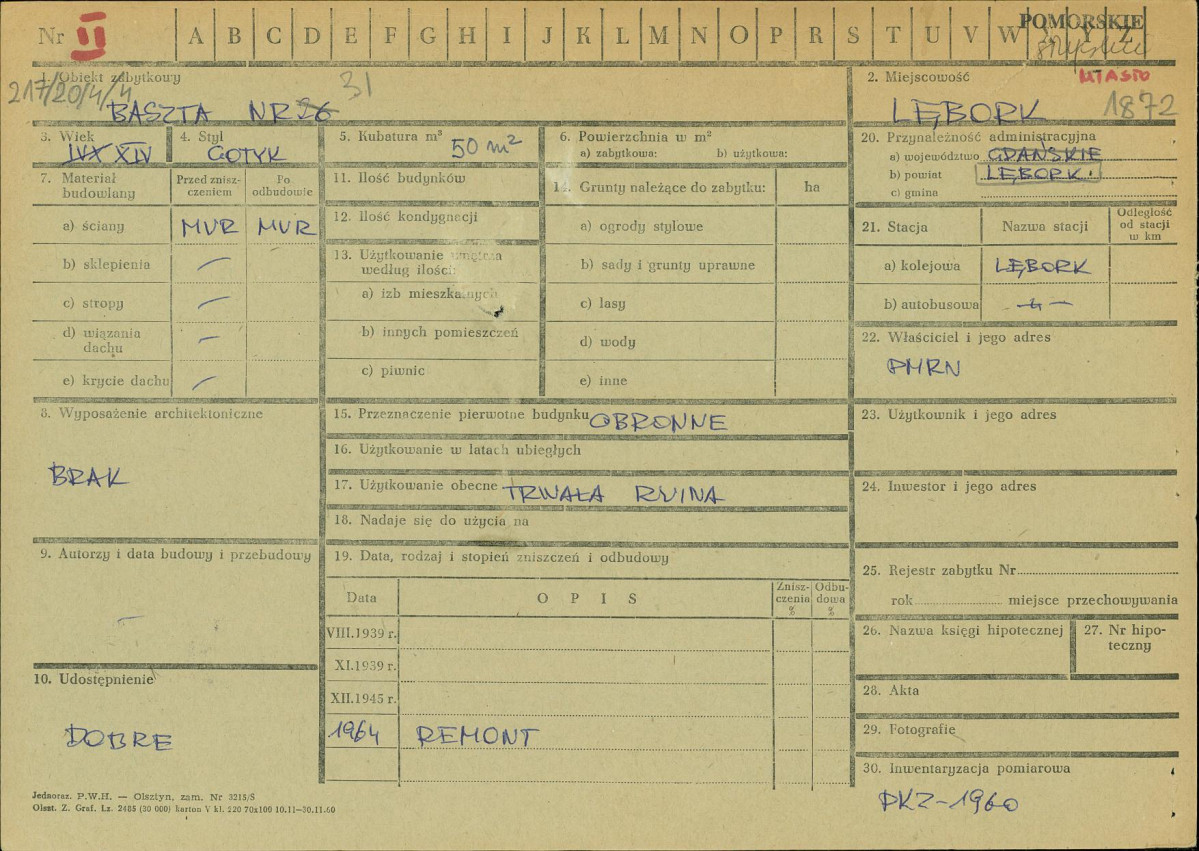 Nr II A B C D E F G H I J K L M N O P R S T U V W X Y Z
POMORSKIE
217/20/4/4
1. Obiekt zabytkowy
31
BASZTA NR 26
2. Miejscowość MIASTO
LĘBORK 1872
3. Wiek
XIV
4. Styl
GOTYK
5. Kubatura m³
50 m²
6. Powierzchnia w m²
a) zabytkowa: b) użytkowa:
20. Przynależność administracyjna
a) województwo GDAŃSKIE
b) powiat LĘBORK
c) gmina
7. Materiał budowlany
Przed zniszczeniem
Po odbudowie
a) ściany MUR MUR
b) sklepienia —
c) stropy —
d) wiązania dachu —
e) krycie dachu —
11. Ilość budynków
12. Ilość kondygnacji
13. Użytkowanie wnętrza według ilości:
a) izb mieszkalnych
b) innych pomieszczeń
c) piwnic
14. Grunty należące do zabytku: ha
a) ogrody stylowe
b) sady i grunty uprawne
c) lasy
d) wody
e) inne
21. Stacja Nazwa stacji Odległość od stacji w km
a) kolejowa LĘBORK
b) autobusowa —〃—
22. Właściciel i jego adres
PMRN
8. Wyposażenie architektoniczne
BRAK
15. Przeznaczenie pierwotne budynku OBRONNE
16. Użytkowanie w latach ubiegłych
17. Użytkowanie obecne TRWAŁA RUINA
18. Nadaje się do użycia na
23. Użytkownik i jego adres
24. Inwestor i jego adres
9. Autorzy i data budowy i przebudowy
—
10. Udostępnienie
DOBRE
19. Data, rodzaj i stopień zniszczeń i odbudowy
Data OPIS Zniszczenia % Odbudowa %
VIII.1939 r.
XI.1939 r.
XII.1945 r.
1964 REMONT
25. Rejestr zabytku Nr
rok miejsce przechowywania
26. Nazwa księgi hipotecznej
27. Nr hipoteczny
28. Akta
29. Fotografie
30. Inwentaryzacja pomiarowa
PKZ-1960
Jednoraz. P.W.H. — Olsztyn, zam. Nr 3215/S
Olszt. Z. Graf. Lz. 2485 (30 000) karton V kl. 220 70x100 10.11—30.11.60